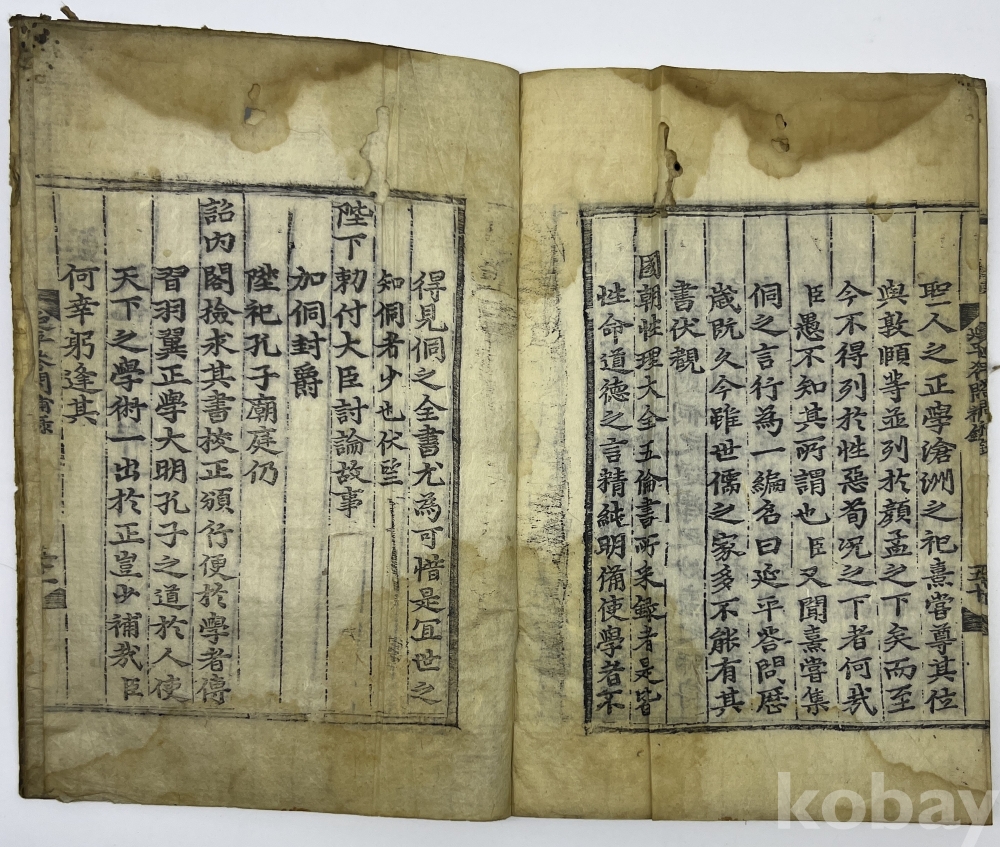 聖人之正學滄洲之祀熹嘗尊其位
與敦頤等並列於顏孟之下矣而至
今不得列於性惡荀况之下者何㢤
臣愚不知其所謂也臣又聞熹嘗集
侗之言行為一編名曰延平答問歷
歲旣久今雖世儒之家多不能有其
書伏觀
國朝性理大全五倫書所采錄者是皆
性命道德之言精純明備使學者不
得見侗之全書尤為可惜是冝世之
知侗者少也伏望
陛下勑付大臣討論故事
加侗封爵
陞祀孔子廟庭仍
詔內閣撿求其書校正頒行便於學者傳
習羽翼正學大明孔子之道於人使
天下之學術一出於正豈少補㢤臣
何幸躬逢其
延平答問補錄
五十
kobay